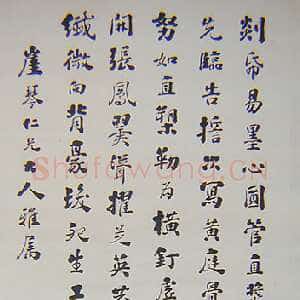 剡帋易墨心圓管直
先臨告誓次寫黃庭骨
努如直槊勒若橫釘虛
開張鳳翼聳擢芝英
纖微向背豪髮死生工
崖琴仁兄大人雅屬
Shufawang.cn